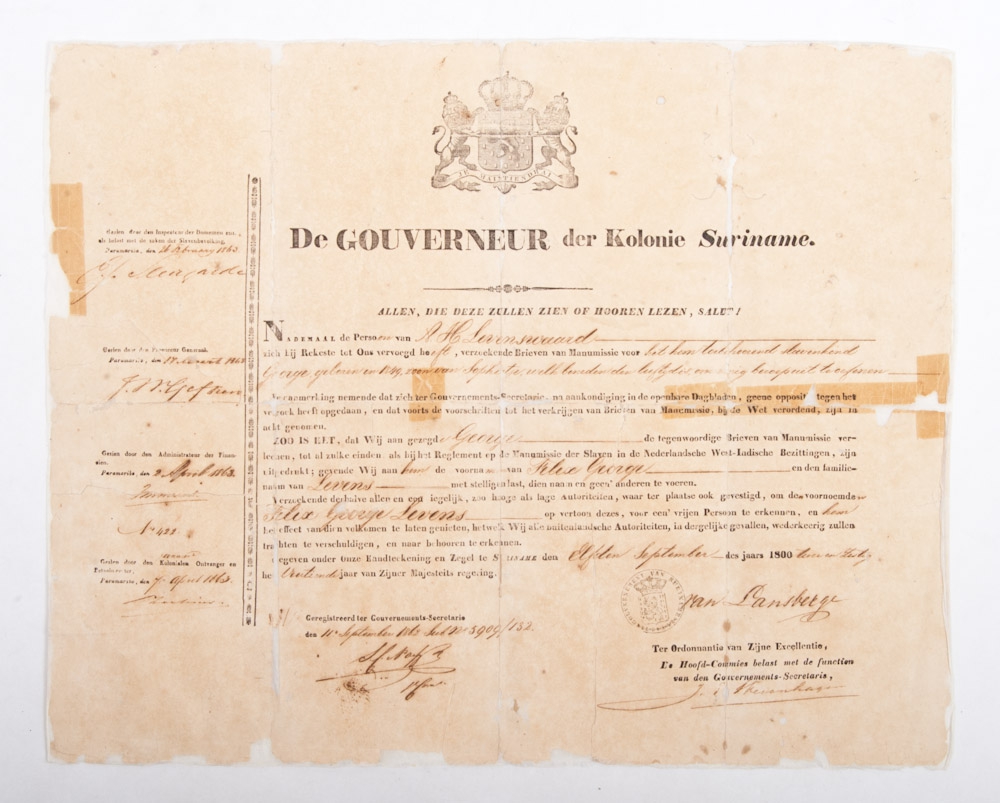 JE MAINTIENDRAI
De GOUVERNEUR der Kolonie Suriname.
ALLEN, DIE DEZE ZULLEN ZIEN OF HOOREN LEZEN, SALUT!
NADEMAAL de Persoon van A H Levenswaard
zich bij Rekeste tot Ons vervoegd heeft, verzoekende Brieven van Manumissie voor het hem toebehoorend slavenkind
George, geboren in 1849, zoon van
In aanmerking nemende dat zich ter Gouvernements-Secretarie, na aankondiging in de openbare Dagbladen, geene oppositie tegen het
verzoek heeft opgedaan, en dat voorts de voorschriften tot het verkrijgen van Brieven van Manumissie, bij de Wet verordend, zijn in
acht genomen.
ZOO IS HET, dat Wij aan gezegd George de tegenwoordige Brieven van Manumissie ver-
leenen, tot al zulke einden als bij het Reglement op de Manumissie der Slaven in de Nederlandsche West-Indische Bezittingen, zijn
uitgedrukt; gevende Wij aan hem de voornaam van Felix George en den familie-
naam van Levens met stelligen last, dien naam en geen' anderen te voeren.
Verzoekende derhalve allen en een iegelijk, zoo hooge als lage Autoriteiten, waar ter plaatse ook gevestigd, om den voornoemden
Felix George Levens op vertoon dezes, voor een' vrijen Persoon te erkennen, en hem
het effect van dien volkomen te laten genieten, hetwelk Wij aan buitenlandsche Autoriteiten, in dergelijke gevallen, wederkeerig zullen
trachten te verschuldigen, en naar behooren te erkennen.
Gegeven onder Onze Handteekening en Zegel te SURINAME den Elfden September des jaars 1800 twee en zestig
het jaar van Zijner Majesteits regering.
van Lansberge
Geregistreerd ter Gouvernements-Secretarie
den 11e September 1862 sub No 3909/132
Ter Ordonnantie van Zijne Excellentie,
De Hoofd-Commies belast met de functien
van den Gouvernements-Secretaris,
Gezien door den Inspecteur der Domeinen enz.,
als belast met de zaken der Slavenbevolking.
Paramaribo, den 26 February 1862
Gezien door den Procureur Generaal.
Paramaribo, den 17 Maart 1862
Gezien door den Administrateur der Finan-
cien.
Paramaribo, den 2 April 1862
No 421
Gezien door den Kolonialen Ontvanger en
Betaalmeester.
Paramaribo, den 7 April 1862